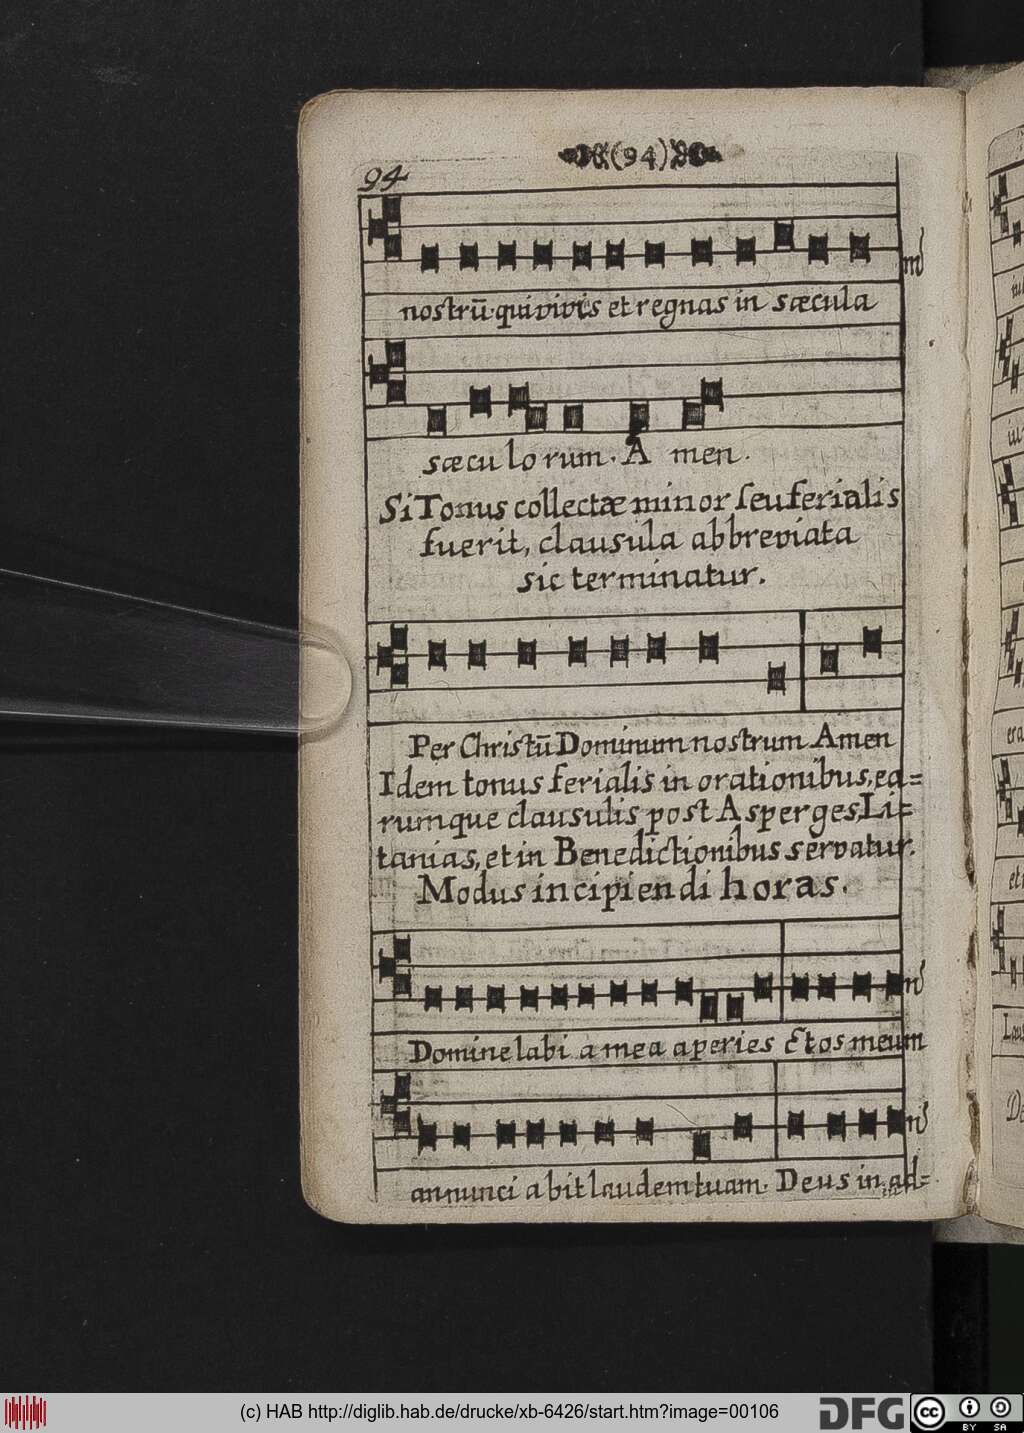 (94)
94
nostrū. qui vivis et regnas in sæcula
sæculorum. A men.
Si Tonus collectæ minor seu ferialis
fuerit, clausula abbreviata
sic terminatur.
Per Christū Dominum nostrum Amen
Idem tonus ferialis in orationibus, ea=
rumque clausulis post Asperges, Li=
tanias, et in Benedictionibus servatur.
Modus incipiendi horas.
Domine labi a mea aperies Et os meum
annunci abit laudem tuam. Deus in ad=
(c) HAB http://diglib.hab.de/drucke/xb-6426/start.htm?image=00106
DFG
cc
BY SA